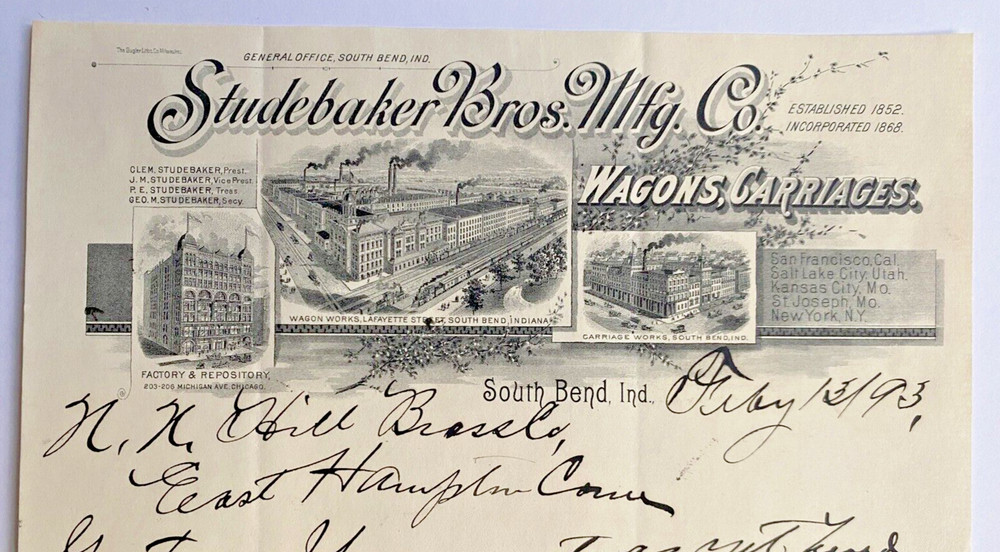 The Gugler Litho. Co. Milwaukee.
GENERAL OFFICE, SOUTH BEND, IND.
Studebaker Bros. Mfg. Co.
ESTABLISHED 1852.
INCORPORATED 1868.
WAGONS, CARRIAGES.
CLEM. STUDEBAKER, Prest.
J. M. STUDEBAKER, Vice Prest.
P. E. STUDEBAKER, Treas.
GEO. M. STUDEBAKER, Secy.
San Francisco, Cal.
Salt Lake City, Utah.
Kansas City, Mo.
St Joseph, Mo.
New York, N.Y.
WAGON WORKS, LAFAYETTE STREET, SOUTH BEND, INDIANA.
CARRIAGE WORKS, SOUTH BEND, IND.
FACTORY & REPOSITORY,
203-206 MICHIGAN AVE. CHICAGO.
South Bend, Ind., Feby 13/93,
N. N. Hill Brass Co,
East Hampton Conn